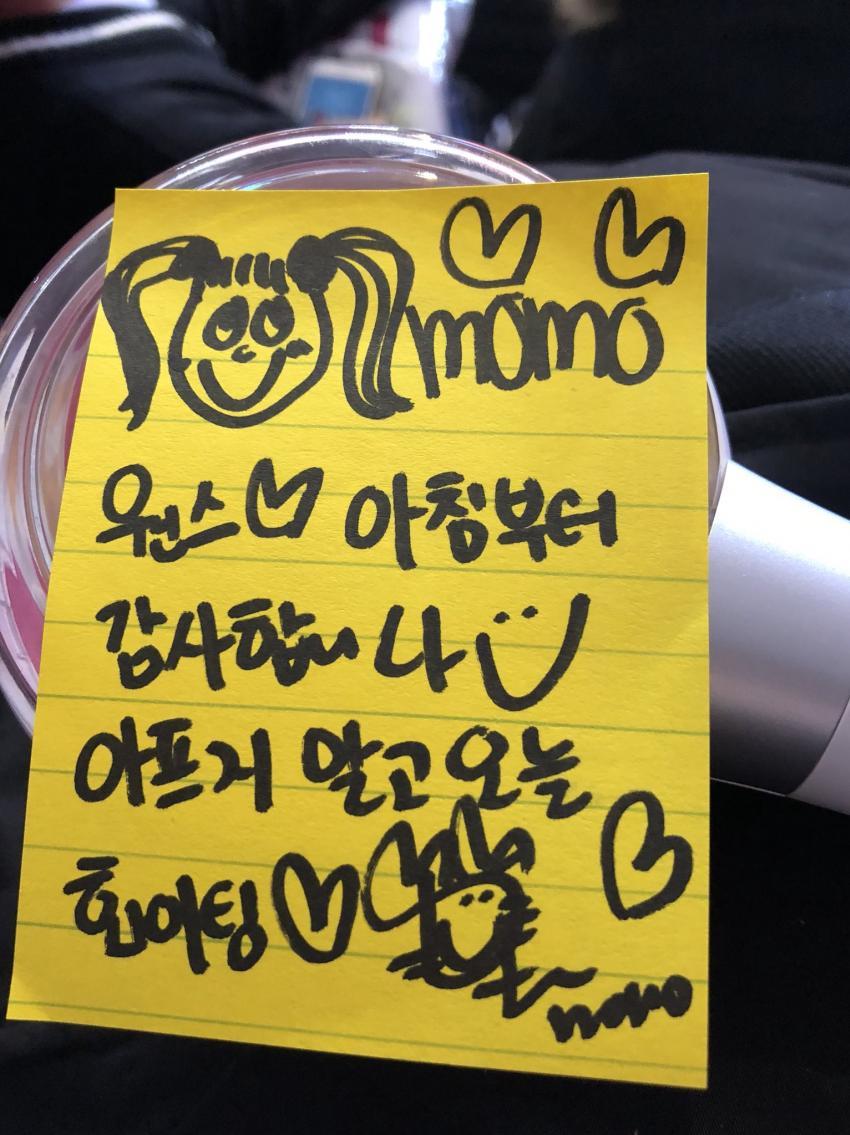 momo
원스 아침부터
감사합니나
아프지 말고 오늘
화이팅
momo